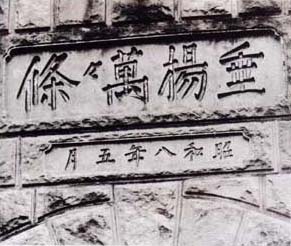 垂楊萬々條
昭和八年五月